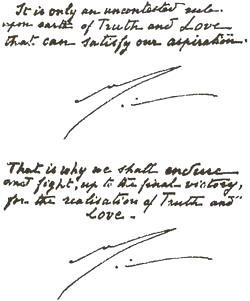 It is only an uncontested rule
upon earth of Truth and Love
that can satisfy our aspiration.
That is why we shall endure
and fight, up to the final victory,
for the realisation of Truth and
Love.